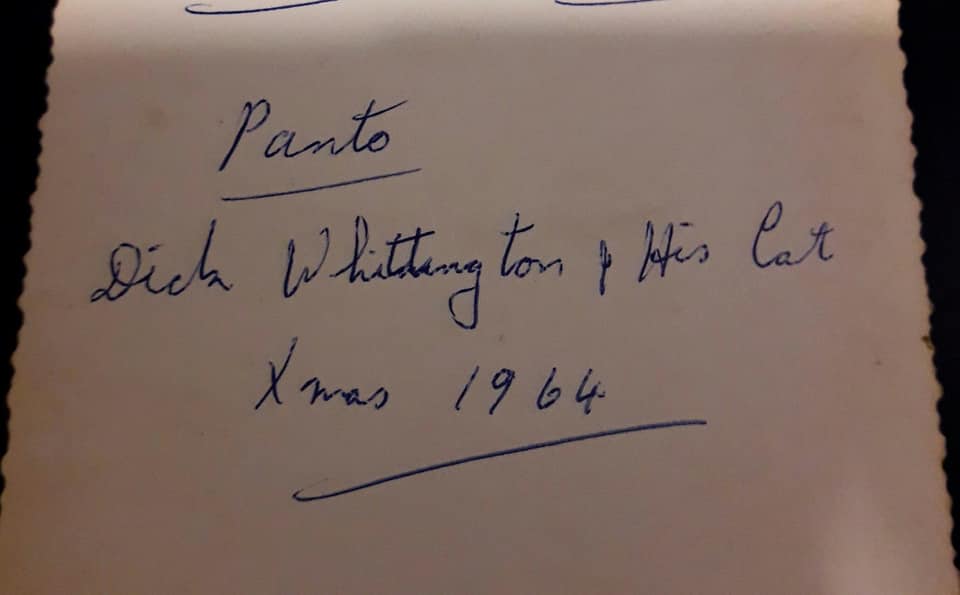 Panto
Dick Whittington & His Cat
Xmas 1964